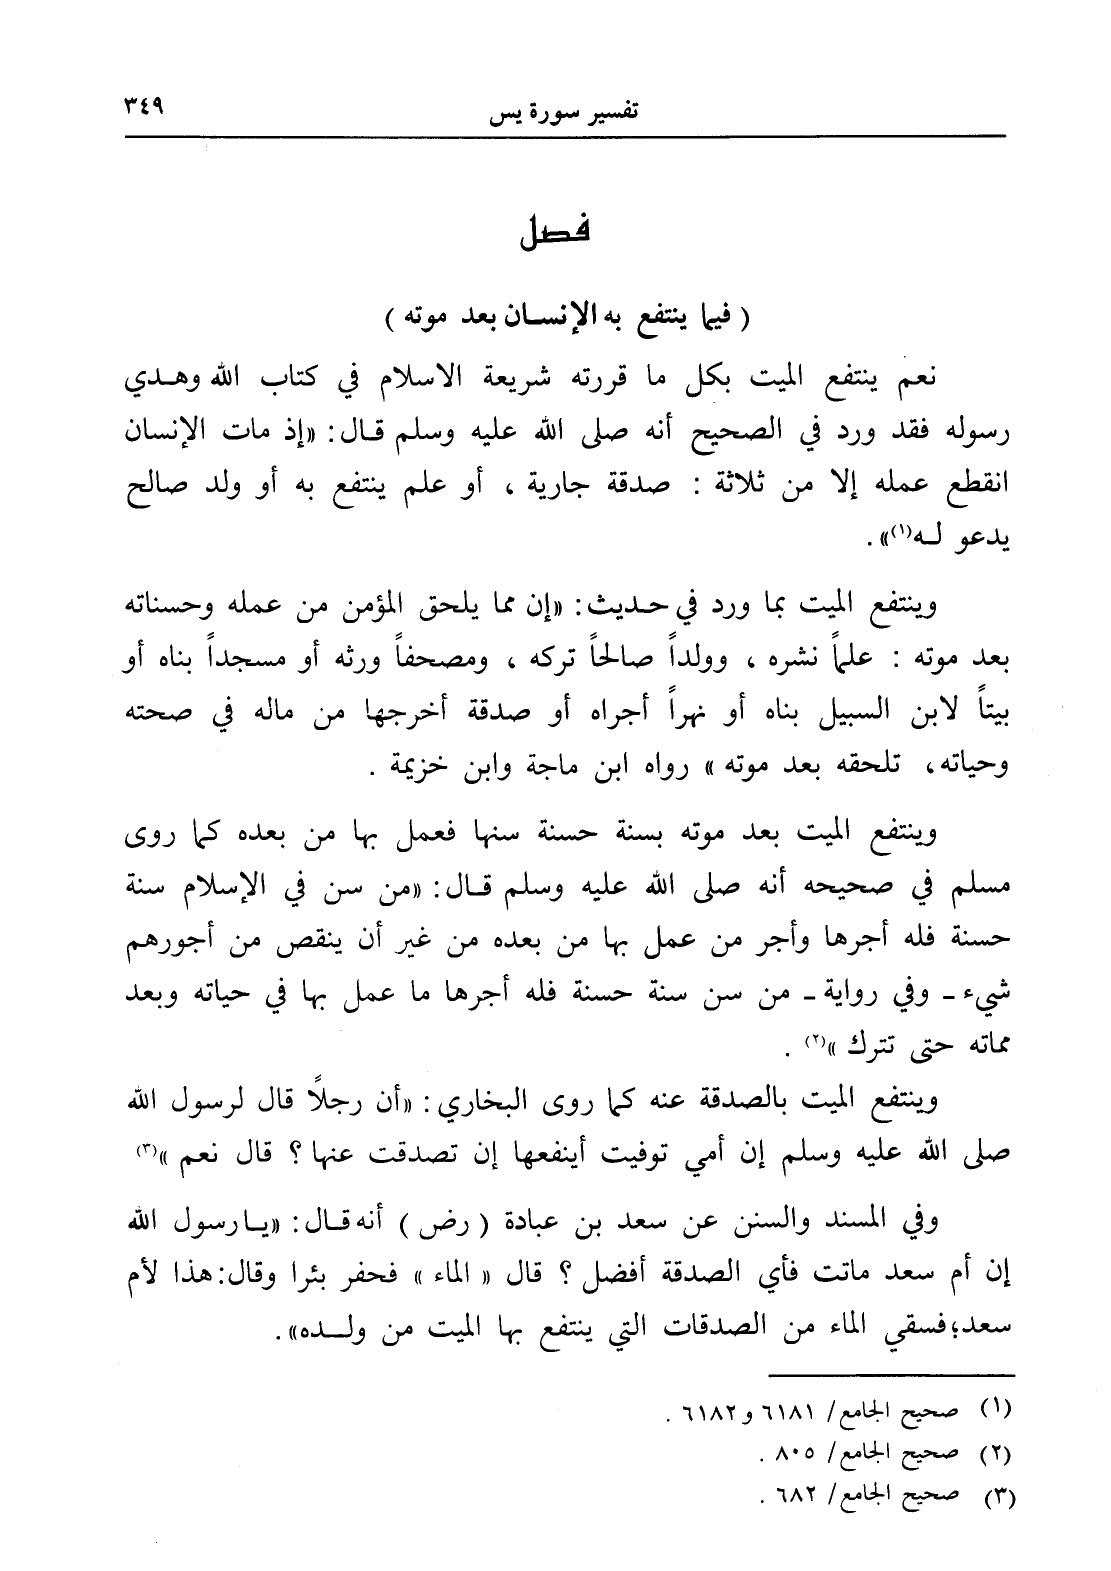 تفسير سورة يس ٣٤٩
فصل
( فيما ينتفع به الإنسان بعد موته )
نعم ينتفع الميت بكل ما قررته شريعة الاسلام في كتاب الله وهدي
رسوله فقد ورد في الصحيح أنه صلى الله عليه وسلم قال: «إذ مات الإنسان
انقطع عمله إلا من ثلاثة : صدقة جارية ، أو علم ينتفع به أو ولد صالح
يدعو له(١)» .
وينتفع الميت بما ورد في حديث: «إن مما يلحق المؤمن من عمله وحسناته
بعد موته : علماً نشره ، وولداً صالحاً تركه ، ومصحفاً ورثه أو مسجداً بناه أو
بيتاً لابن السبيل بناه أو نهراً أجراه أو صدقة أخرجها من ماله في صحته
وحياته، تلحقه بعد موته » رواه ابن ماجة وابن خزيمة .
وينتفع الميت بعد موته بسنة حسنة سنها فعمل بها من بعده كما روى
مسلم في صحيحه أنه صلى الله عليه وسلم قال: «من سن في الإسلام سنة
حسنة فله أجرها وأجر من عمل بها من بعده من غير أن ينقص من أجورهم
شيء - وفي رواية - من سن سنة حسنة فله أجرها ما عمل بها في حياته وبعد
مماته حتى تترك »(٢) .
وينتفع الميت بالصدقة عنه كما روى البخاري: «أن رجلاً قال لرسول الله
صلى الله عليه وسلم إن أمي توفيت أينفعها إن تصدقت عنها ؟ قال نعم »(٣)
وفي المسند والسنن عن سعد بن عبادة ( رض ) أنه قال: «يا رسول الله
إن أم سعد ماتت فأي الصدقة أفضل ؟ قال « الماء » فحفر بئرا وقال: هذا لأم
سعد؛ فسقي الماء من الصدقات التي ينتفع بها الميت من ولده» .
(١) صحيح الجامع/ ٦١٨١ و ٦١٨٢ .
(٢) صحيح الجامع/ ٨٠٥ .
(٣) صحيح الجامع/ ٦٨٢ .